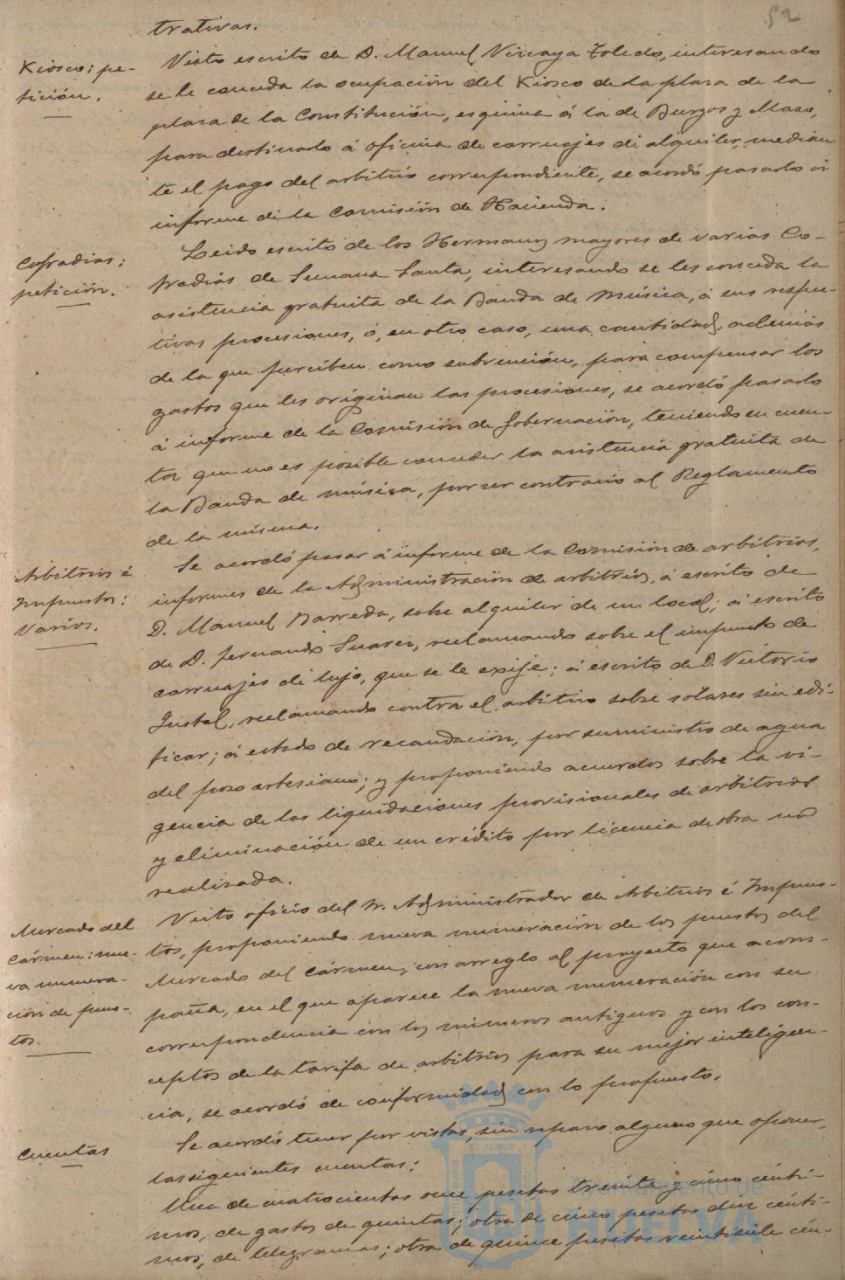 52
trativas.
Kiosco: pe-
tición.
Visto escrito de D. Manuel Vizcaya Toledo, interesando
se le conceda la ocupación del Kiosco de la plaza de la
plaza de la Constitución, esquina á la de Burgos y Mazo,
para destinarlo á oficina de carruajes de alquiler, median
te el pago del arbitrio correspondiente, se acordó pasarlo á
informe de la Comisión de Hacienda.
Cofradias:
petición.
Leido escrito de los Hermanos mayores de varias Co-
fradías de Semana Santa, interesando se les conceda la
asistencia gratuita de la Banda de música, á sus respec-
tivas procesiones, ó, en otro caso, una cantidad, además
de la que perciben como subvención, para compensar los
gastos que les originan las procesiones, se acordó pasarlo
á informe de la Comisión de Gobernación, teniendo en cuen-
ta que no es posible conceder la asistencia gratuita de
la Banda de música, por ser contrario al Reglamento
de la misma.
Arbitrios é
Impuestos:
Varios.
Se acordó pasar á informe de la Comisión de arbitrios,
informes de la Administración de arbitrios, á escrito de
D. Manuel Barreda, sobre alquiler de un local; á escrito
de D. Fernando Suarez, reclamando sobre el impuesto de
carruajes de lujo, que se le exije; á escrito de D. Victorio
Justel, reclamando contra el arbitrio sobre solares sin edi-
ficar; á estado de recaudación, por suministro de agua
del pozo artesiano; y proponiendo acuerdos sobre la vi-
gencia de las liquidaciones provisionales de arbitrios
y eliminación de un crédito por licencia de obra no
realizada.
Mercado del
Cármen: nue-
va numera-
ción de pues-
tos.
Visto oficio del Sr. Administrador de Arbitrios é Impues-
tos, proponiendo nueva numeración de los puestos del
Mercado del Cármen, con arreglo al proyecto que acom-
paña, en el que aparece la nueva numeración con su
correspondencia con los números antiguos y con los con-
ceptos de la tarifa de arbitrios para su mejor inteligen-
cia, se acordó de conformidad con lo propuesto.
Cuentas
Se acordó tener por vistas, sin reparo alguno que oponer,
las siguientes cuentas:
Una de cuatrocientas once pesetas treinta y cinco cénti-
mos, de gastos de quintas; otra de cinco pesetas diez cénti-
mos, de telegramas; otra de quince pesetas veintisiete cén-
Ayuntamiento de
HUELVA